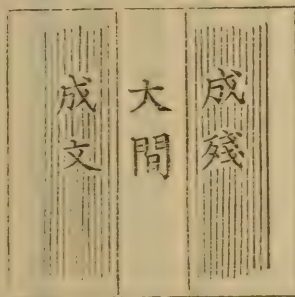 成殘
大問
成文